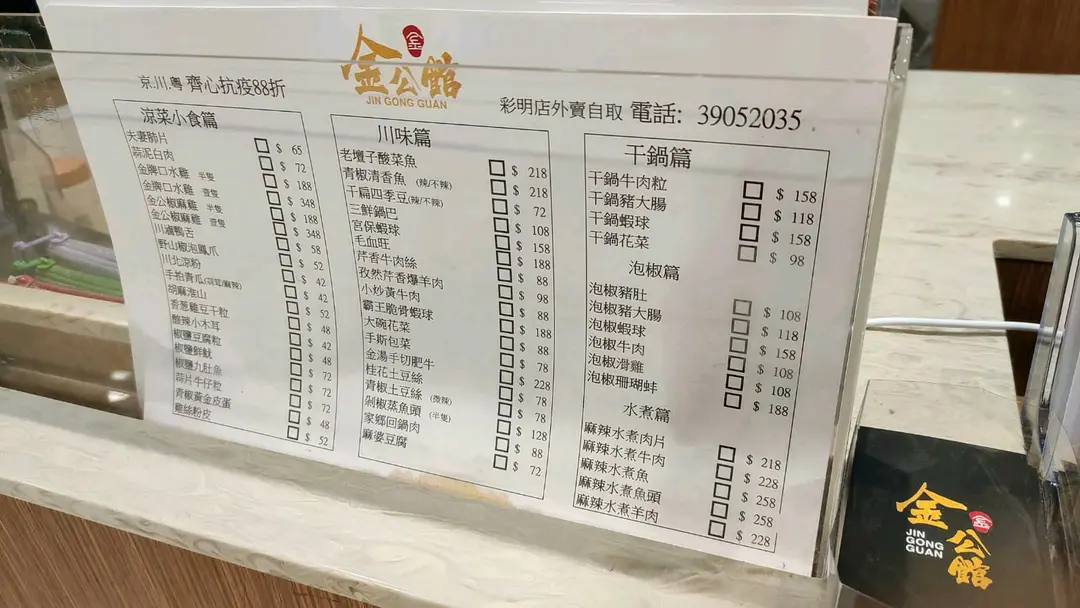 金公館
金
JIN GONG GUAN
京.川.粵 齊心抗疫88折
彩明店外賣自取 電話: 39052035
涼菜小食篇
夫妻肺片 $ 65
蒜泥白肉 $ 72
金牌口水雞 半隻 $ 188
金牌口水雞 壹隻 $ 348
金公椒麻雞 半隻 $ 188
金公椒麻雞 壹隻 $ 348
川滷鴨舌 $ 58
野山椒泡鳳爪 $ 52
川北涼粉 $ 42
手拍青瓜(蒜茸/麻辣) $ 42
胡麻淮山 $ 52
香葱雞豆干粒 $ 48
酸辣小木耳 $ 42
椒鹽豆腐粒 $ 48
椒鹽鮮魷 $ 72
椒鹽九肚魚 $ 72
蒜片牛仔粒 $ 72
青椒黃金皮蛋 $ 48
雞絲粉皮 $ 52
川味篇
老壇子酸菜魚 $ 218
青椒清香魚 (辣/不辣) $ 218
干扁四季豆(辣/不辣) $ 72
三鮮鍋巴 $ 108
宮保蝦球 $ 158
毛血旺 $ 188
芹香牛肉絲 $ 88
孜然芹香爆羊肉 $ 98
小炒黃牛肉 $ 88
霸王脆骨蝦球 $ 188
大碗花菜 $ 88
手斯包菜 $ 78
金湯手切肥牛 $ 228
桂花土豆絲 $ 78
青椒土豆絲 (微辣) $ 78
剁椒蒸魚頭 (半隻) $ 128
家鄉回鍋肉 $ 88
麻婆豆腐 $ 72
干鍋篇
干鍋牛肉粒 $ 158
干鍋豬大腸 $ 118
干鍋蝦球 $ 158
干鍋花菜 $ 98
泡椒篇
泡椒豬肚 $ 108
泡椒豬大腸 $ 118
泡椒蝦球 $ 158
泡椒牛肉 $ 108
泡椒滑雞 $ 108
泡椒珊瑚蚌 $ 188
水煮篇
麻辣水煮肉片 $ 218
麻辣水煮牛肉 $ 228
麻辣水煮魚 $ 258
麻辣水煮魚頭 $ 258
麻辣水煮羊肉 $ 228
金公館
金
JIN
GONG
GUAN